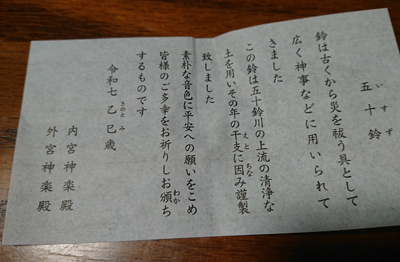 五十鈴
いすず
鈴は古くから災を祓う具として
広く神事などに用いられて
きました
この鈴は五十鈴川の上流の清浄な
土を用いその年の干支に因み謹製
えと ちな
致しました
素朴な音色に平安への願いをこめ
皆様のご多幸をお祈りしお頒ち
わか
するものです
令和七 乙巳歳
きのとみ
内宮神楽殿
外宮神楽殿